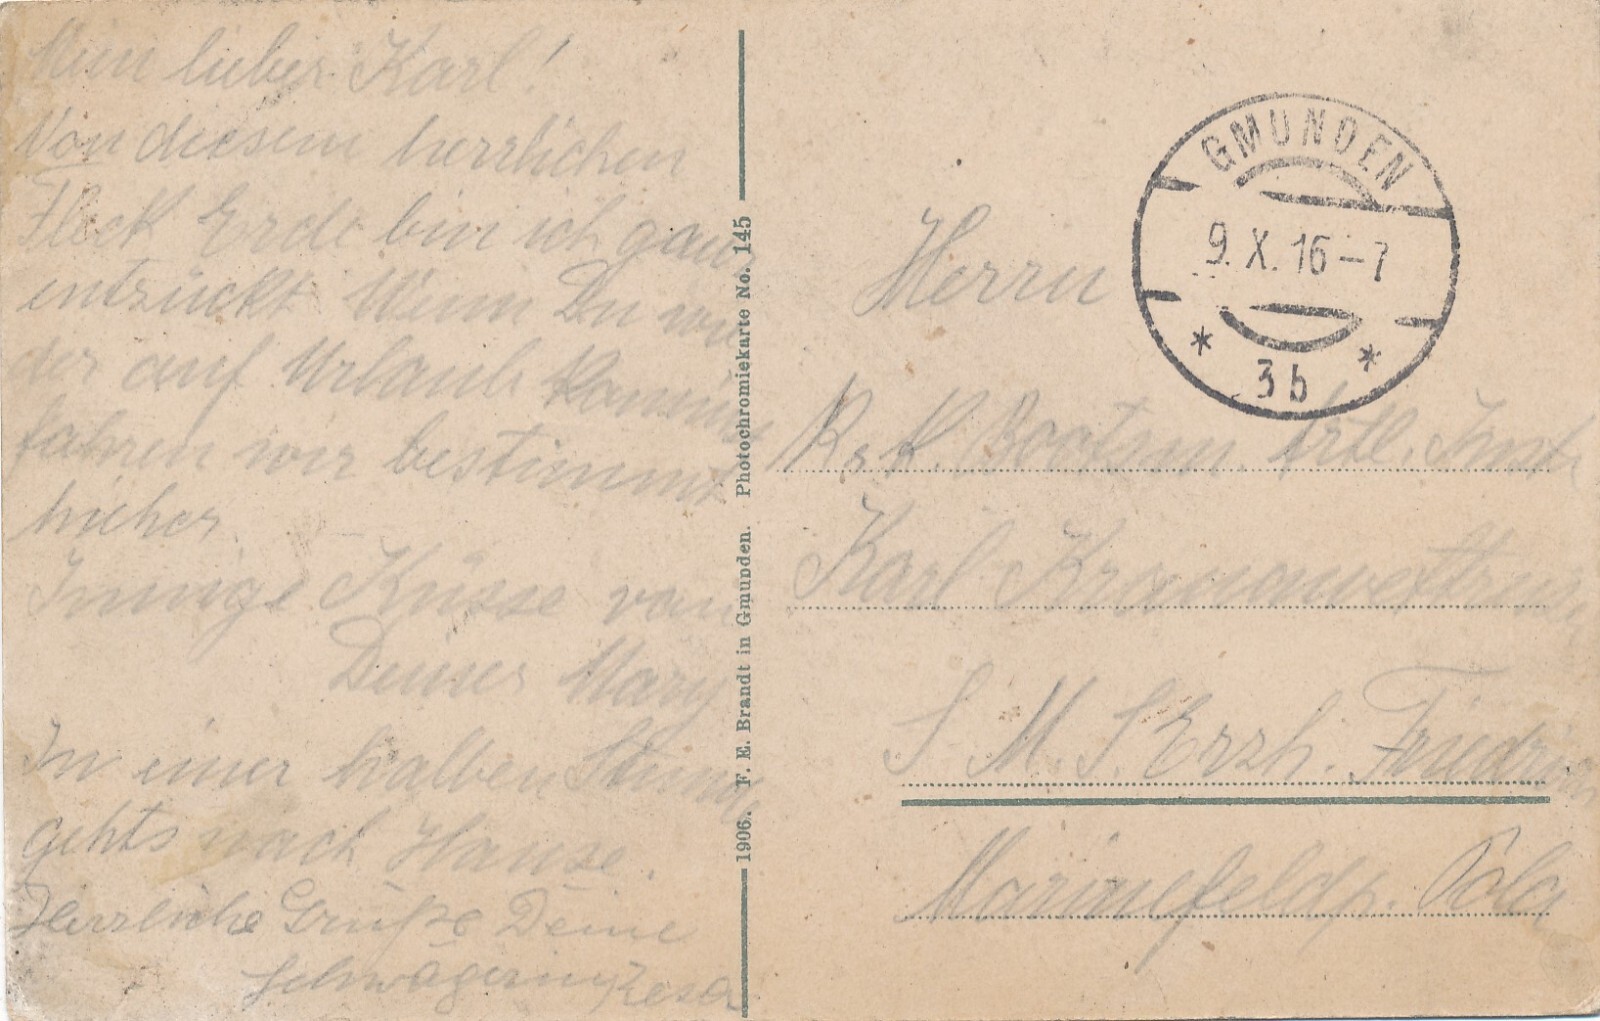 Mein lieber Karl!
Von diesem herrlichen
Fleck Erde bin ich ganz
entzückt. Wenn Du wie-
der auf Urlaub kommst
fahren wir bestimmt
hieher.
Innige Küsse von
Deiner Mary
In einer halben Stunde
gehts nach Hause.
Herzliche Grüße Deine
Schwägerin Resa
1906. F. E. Brandt in Gmunden. Photochromiekarte No. 145
GMUNDEN
9. X. 16 - 7
* 3b *
Herrn
K. K. Bootsm. Artl. Instr.
Karl
S. M. S. Erzh. Friedrich
Marinefeldp. Pola